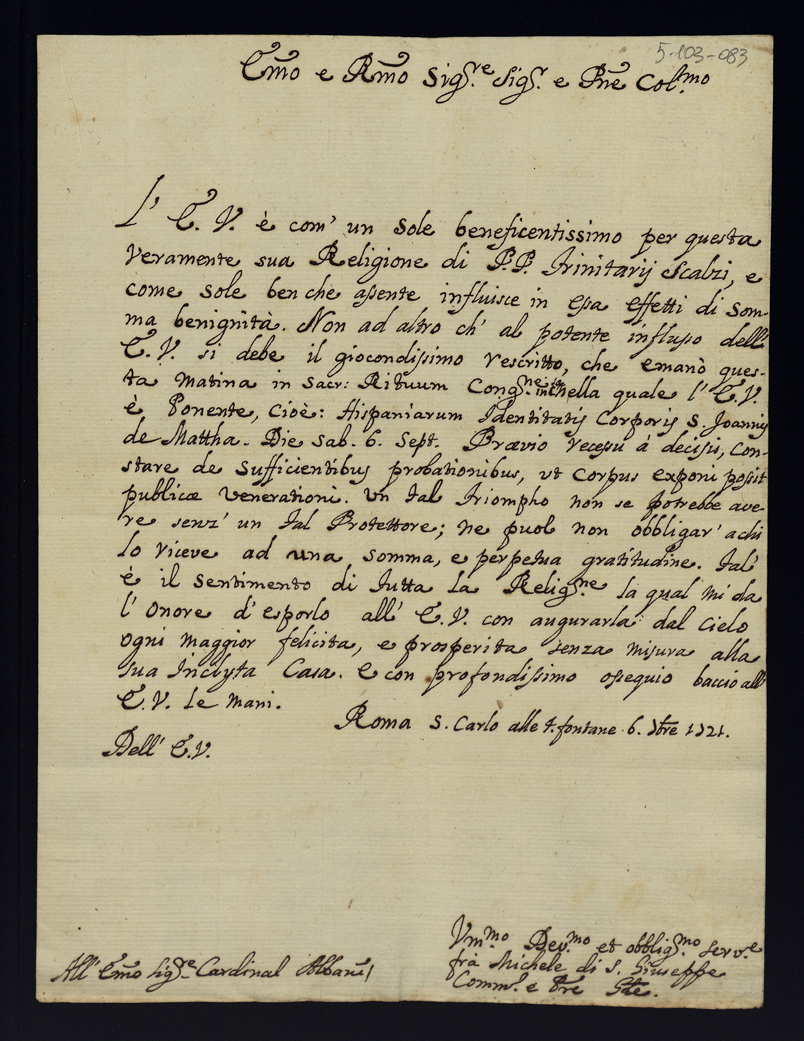 5-103-083
Emo e Rmo Sig.re Sig.r e Pne Col.mo
L' E. V. è com' un Sole beneficentissimo per questa
veramente sua Religione di P.P. Trinitarij Scalzi, e
come Sole ben che assente influisce in essa effetti di som-
ma benignità. Non ad altro ch' al potente influsso dell'
E. V. si debe il giocondissimo rescritto, che emanò ques-
ta Matina in Sacr: Rituum Cong.ne nella quale l' E. V.
è Ponente, Cioè: Hispaniarum Identitatis Corporis S. Joannis
de Mattha. Die Sab. 6. Sept. Prævio recessu à decisis, Con-
stare de sufficientibus probationibus, ut Corpus exponi possit
publicæ venerationi. Un tal Triompho non se potrebbe ave-
re senz' un tal Protettore; ne puol non obbligar' a chi
lo riceve ad una somma, e perpetua gratitudine. Tal'
è il sentimento di tutta la Relig.ne la qual mi da
l' onore d' esporlo all' E. V. con augurarla dal Cielo
ogni maggior felicita, e prosperita senza misura alla
sua Inclyta Casa. E con profondissimo ossequio baccio all'
E. V. le mani.
Roma S. Carlo alle 4. fontane 6. 7bre 1721.
Dell' E.V.
Vm.mo Dev.mo et obblig.mo serv.e
fra Michele di S. Giuseppe
Comm.o e Pre Gle.
All' Emo Sig.re Cardinal Albani